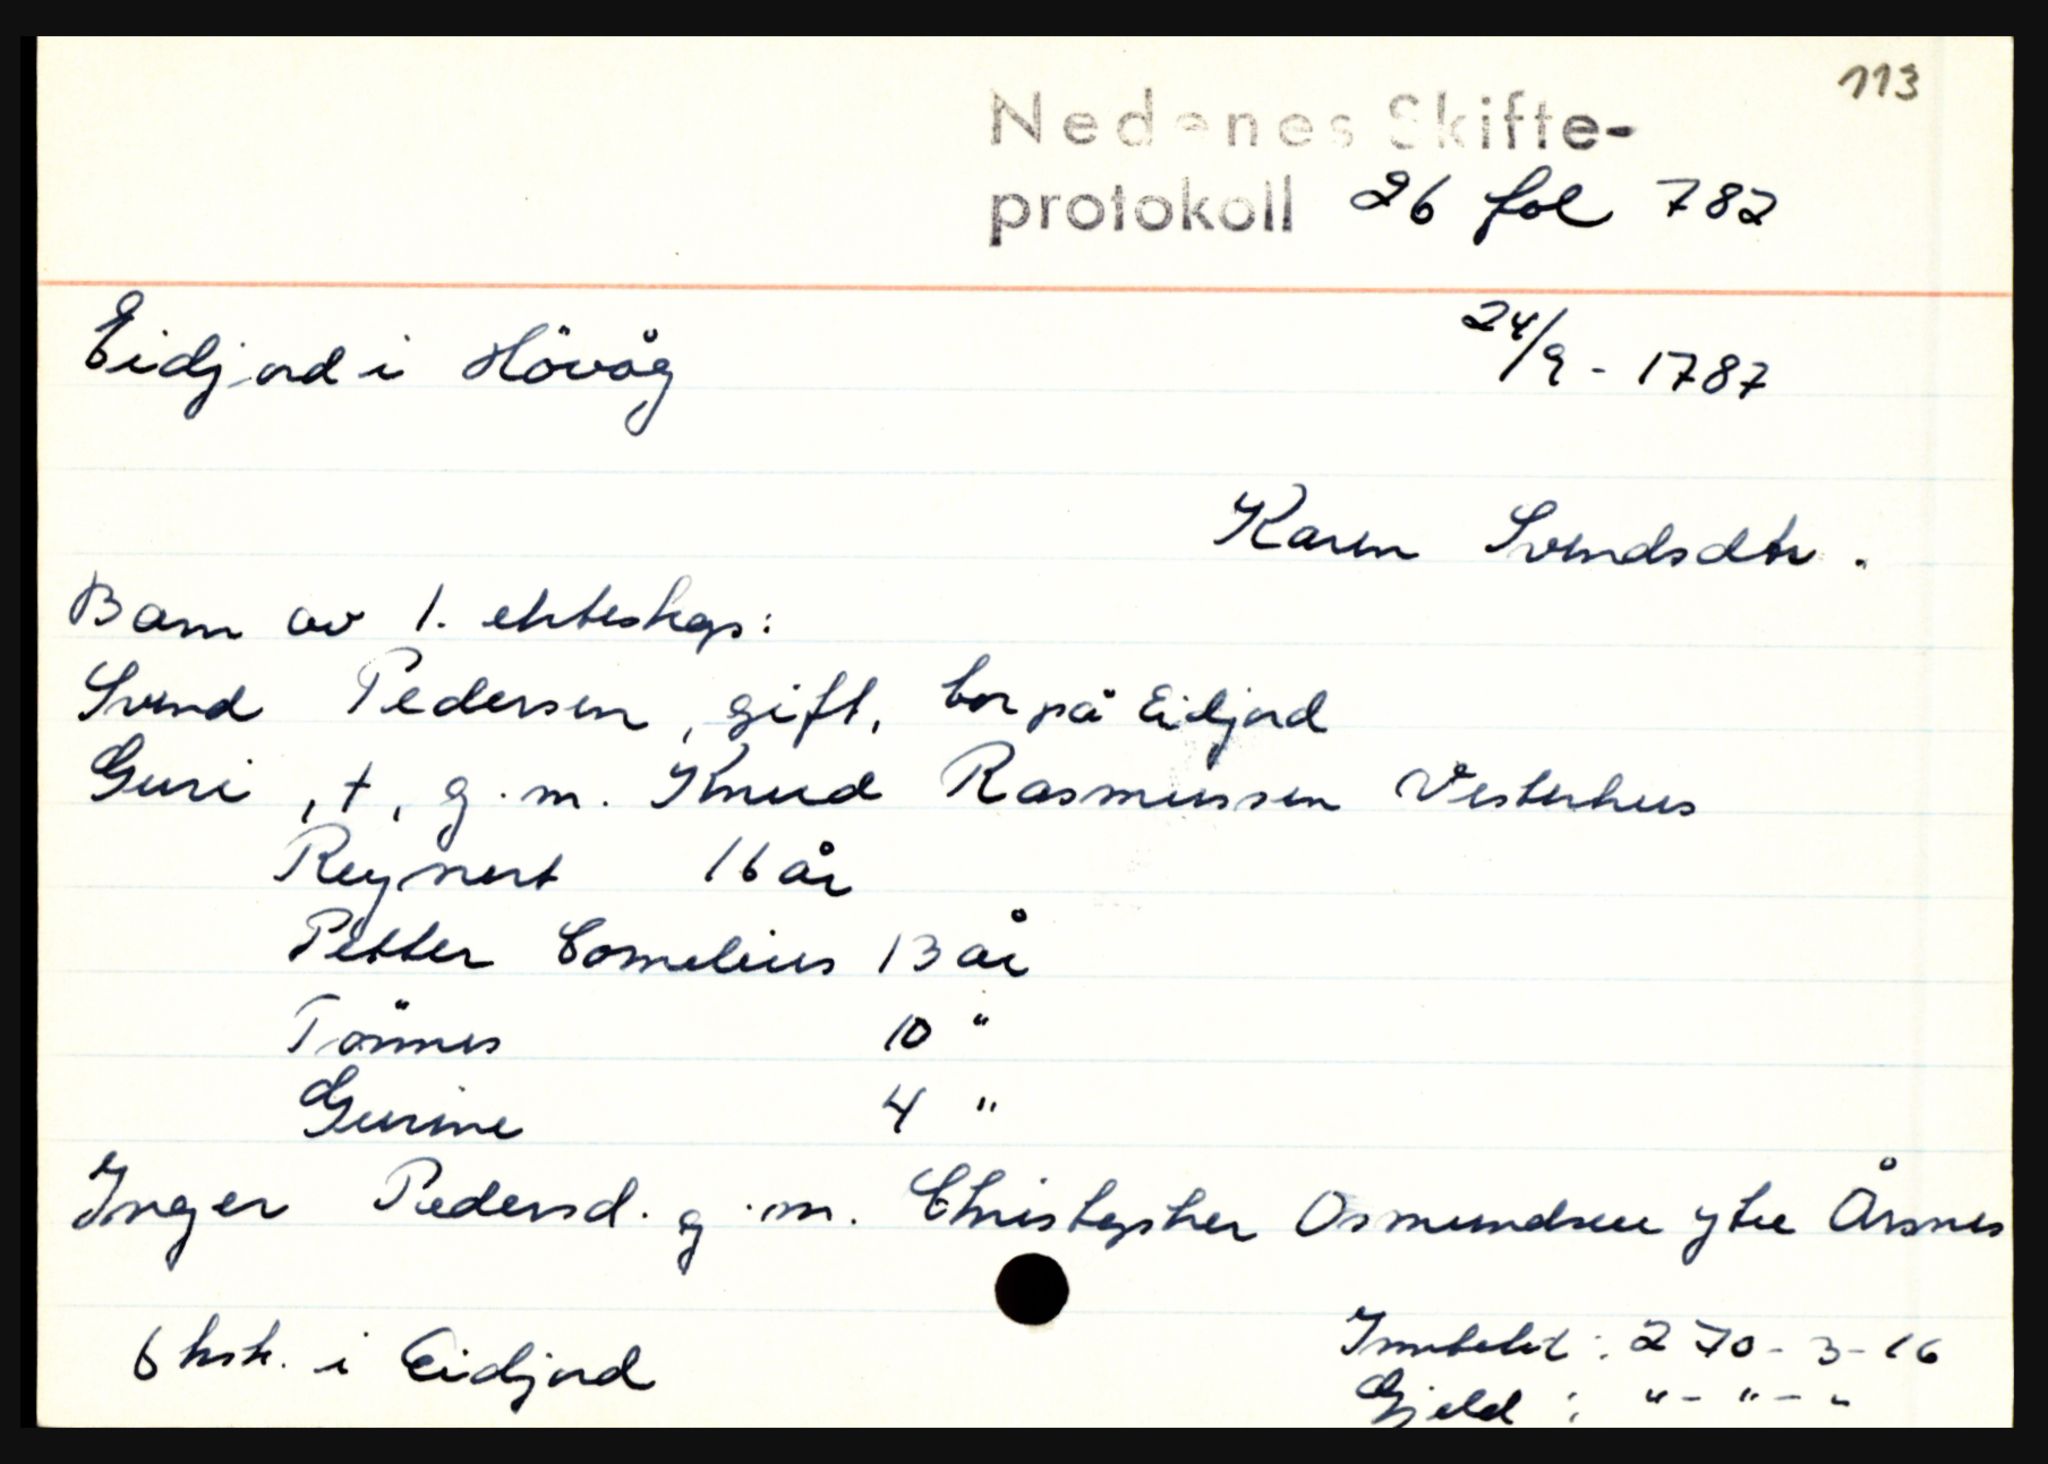 113
Nedenes Skifte-
protokoll 26 fol 782
Eidjord i Hövåg 24/9 - 1787
Karen Svendsdtr.
Barn av 1. ekteskap:
Svend Pedersen, gift, bor på Eidjord
Guri, †, g.m. Knud Rasmussen Vesterhus
Reynert 16 år
Petter Cornelius 13 år
Tönnes 10 "
Gurine 4 "
Inger Pedersd. g.m. Christopher Osmundsen ytre Årsnes
6 hsk. i Eidjord
Inntekt: 270-3-16
Gjeld: "-"-"